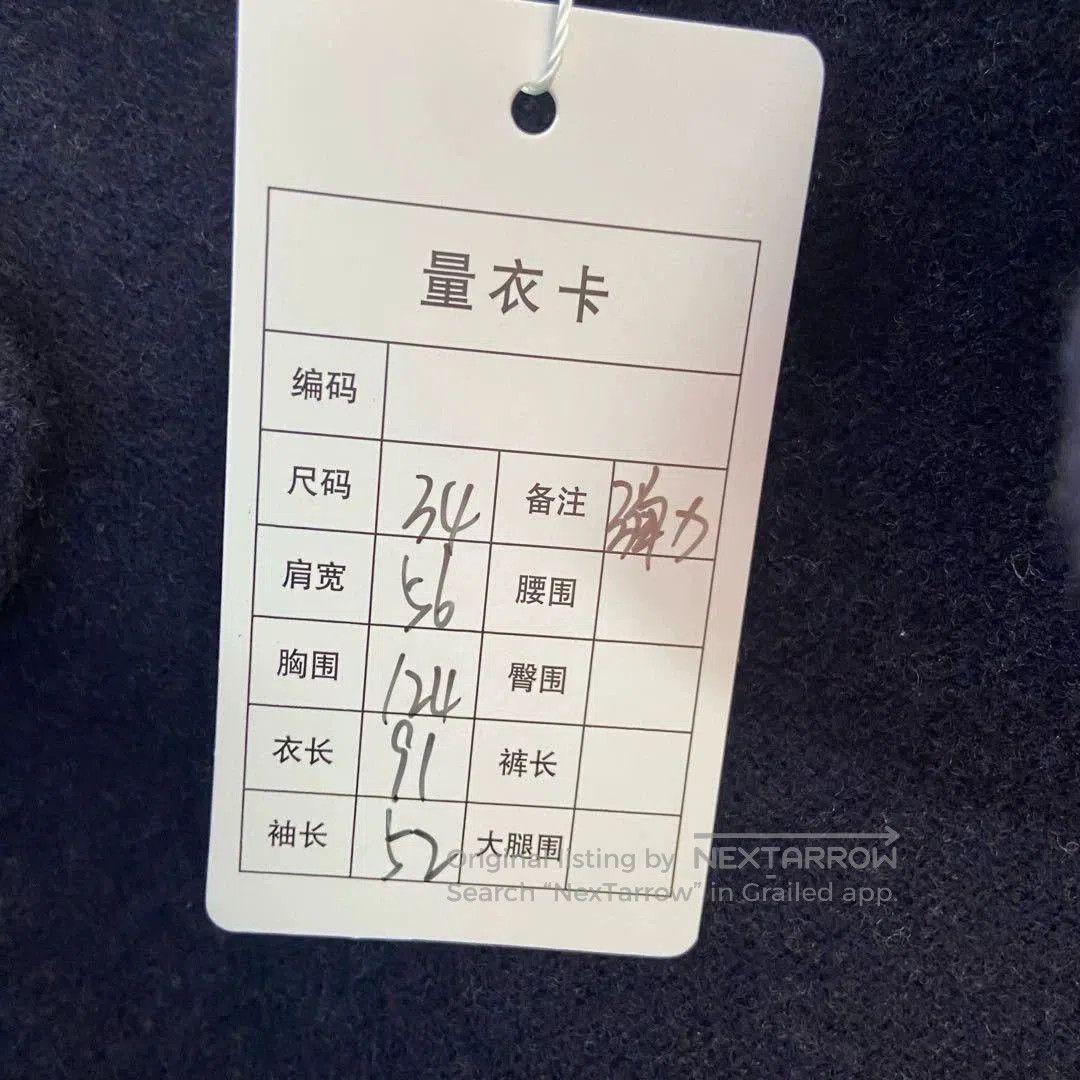 量衣卡
编码
尺码 34 备注 弹力
肩宽 56 腰围
胸围 124 臀围
衣长 91 裤长
袖长 52 大腿围
Original listing by NEXTARROW
Search “NexTarrow” in Grailed app.